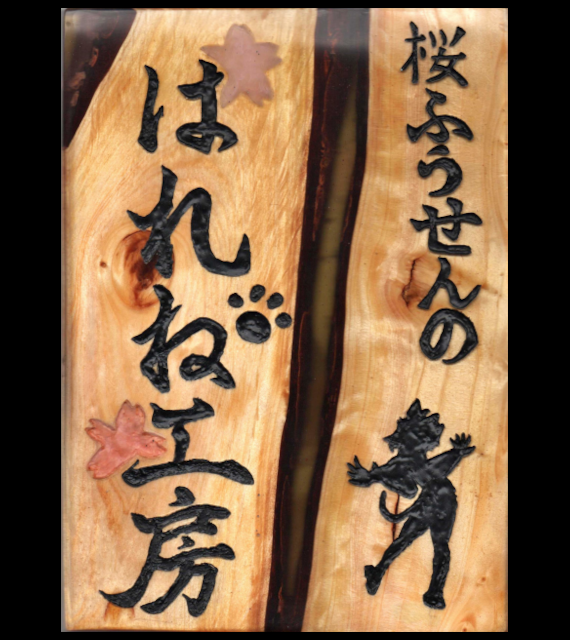 桜ふうせんの
はれね工房